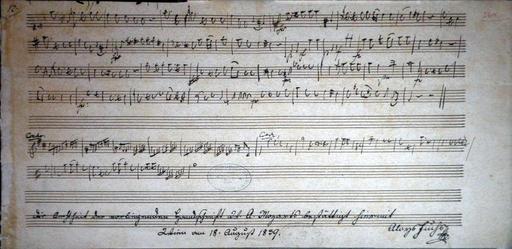 Cad:
Cad.
Die Aechtheit der vorliegenden Handschrift als A. Mozarts bestättigt hiermit
Wien am 18. August 1839.
Aloys Fuchs